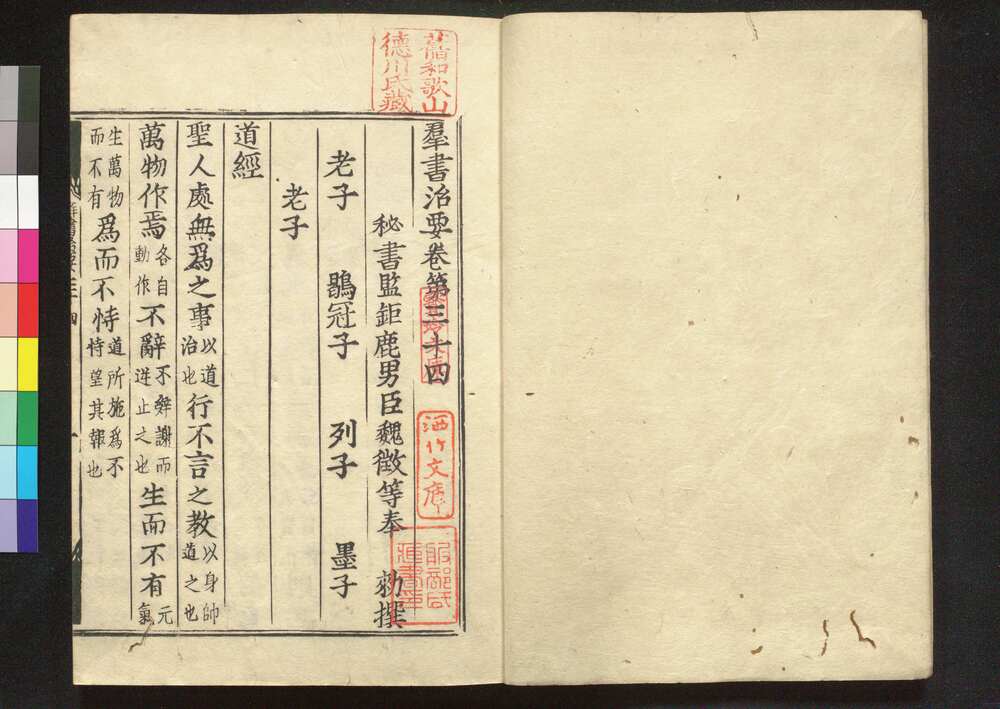 羣書治要卷第三十四
秘書監鉅鹿男臣魏徵等奉　勑撰
老子　鶡冠子　列子　墨子
老子
道經
聖人處無爲之事以道治也行不言之教以身帥道之也
萬物作焉各自動作不辭不辭謝而逆止之也生而不有元氣
生萬物而不有爲而不恃道所施爲不恃望其報也
舊和歌山
德川氏藏
洒竹文庫